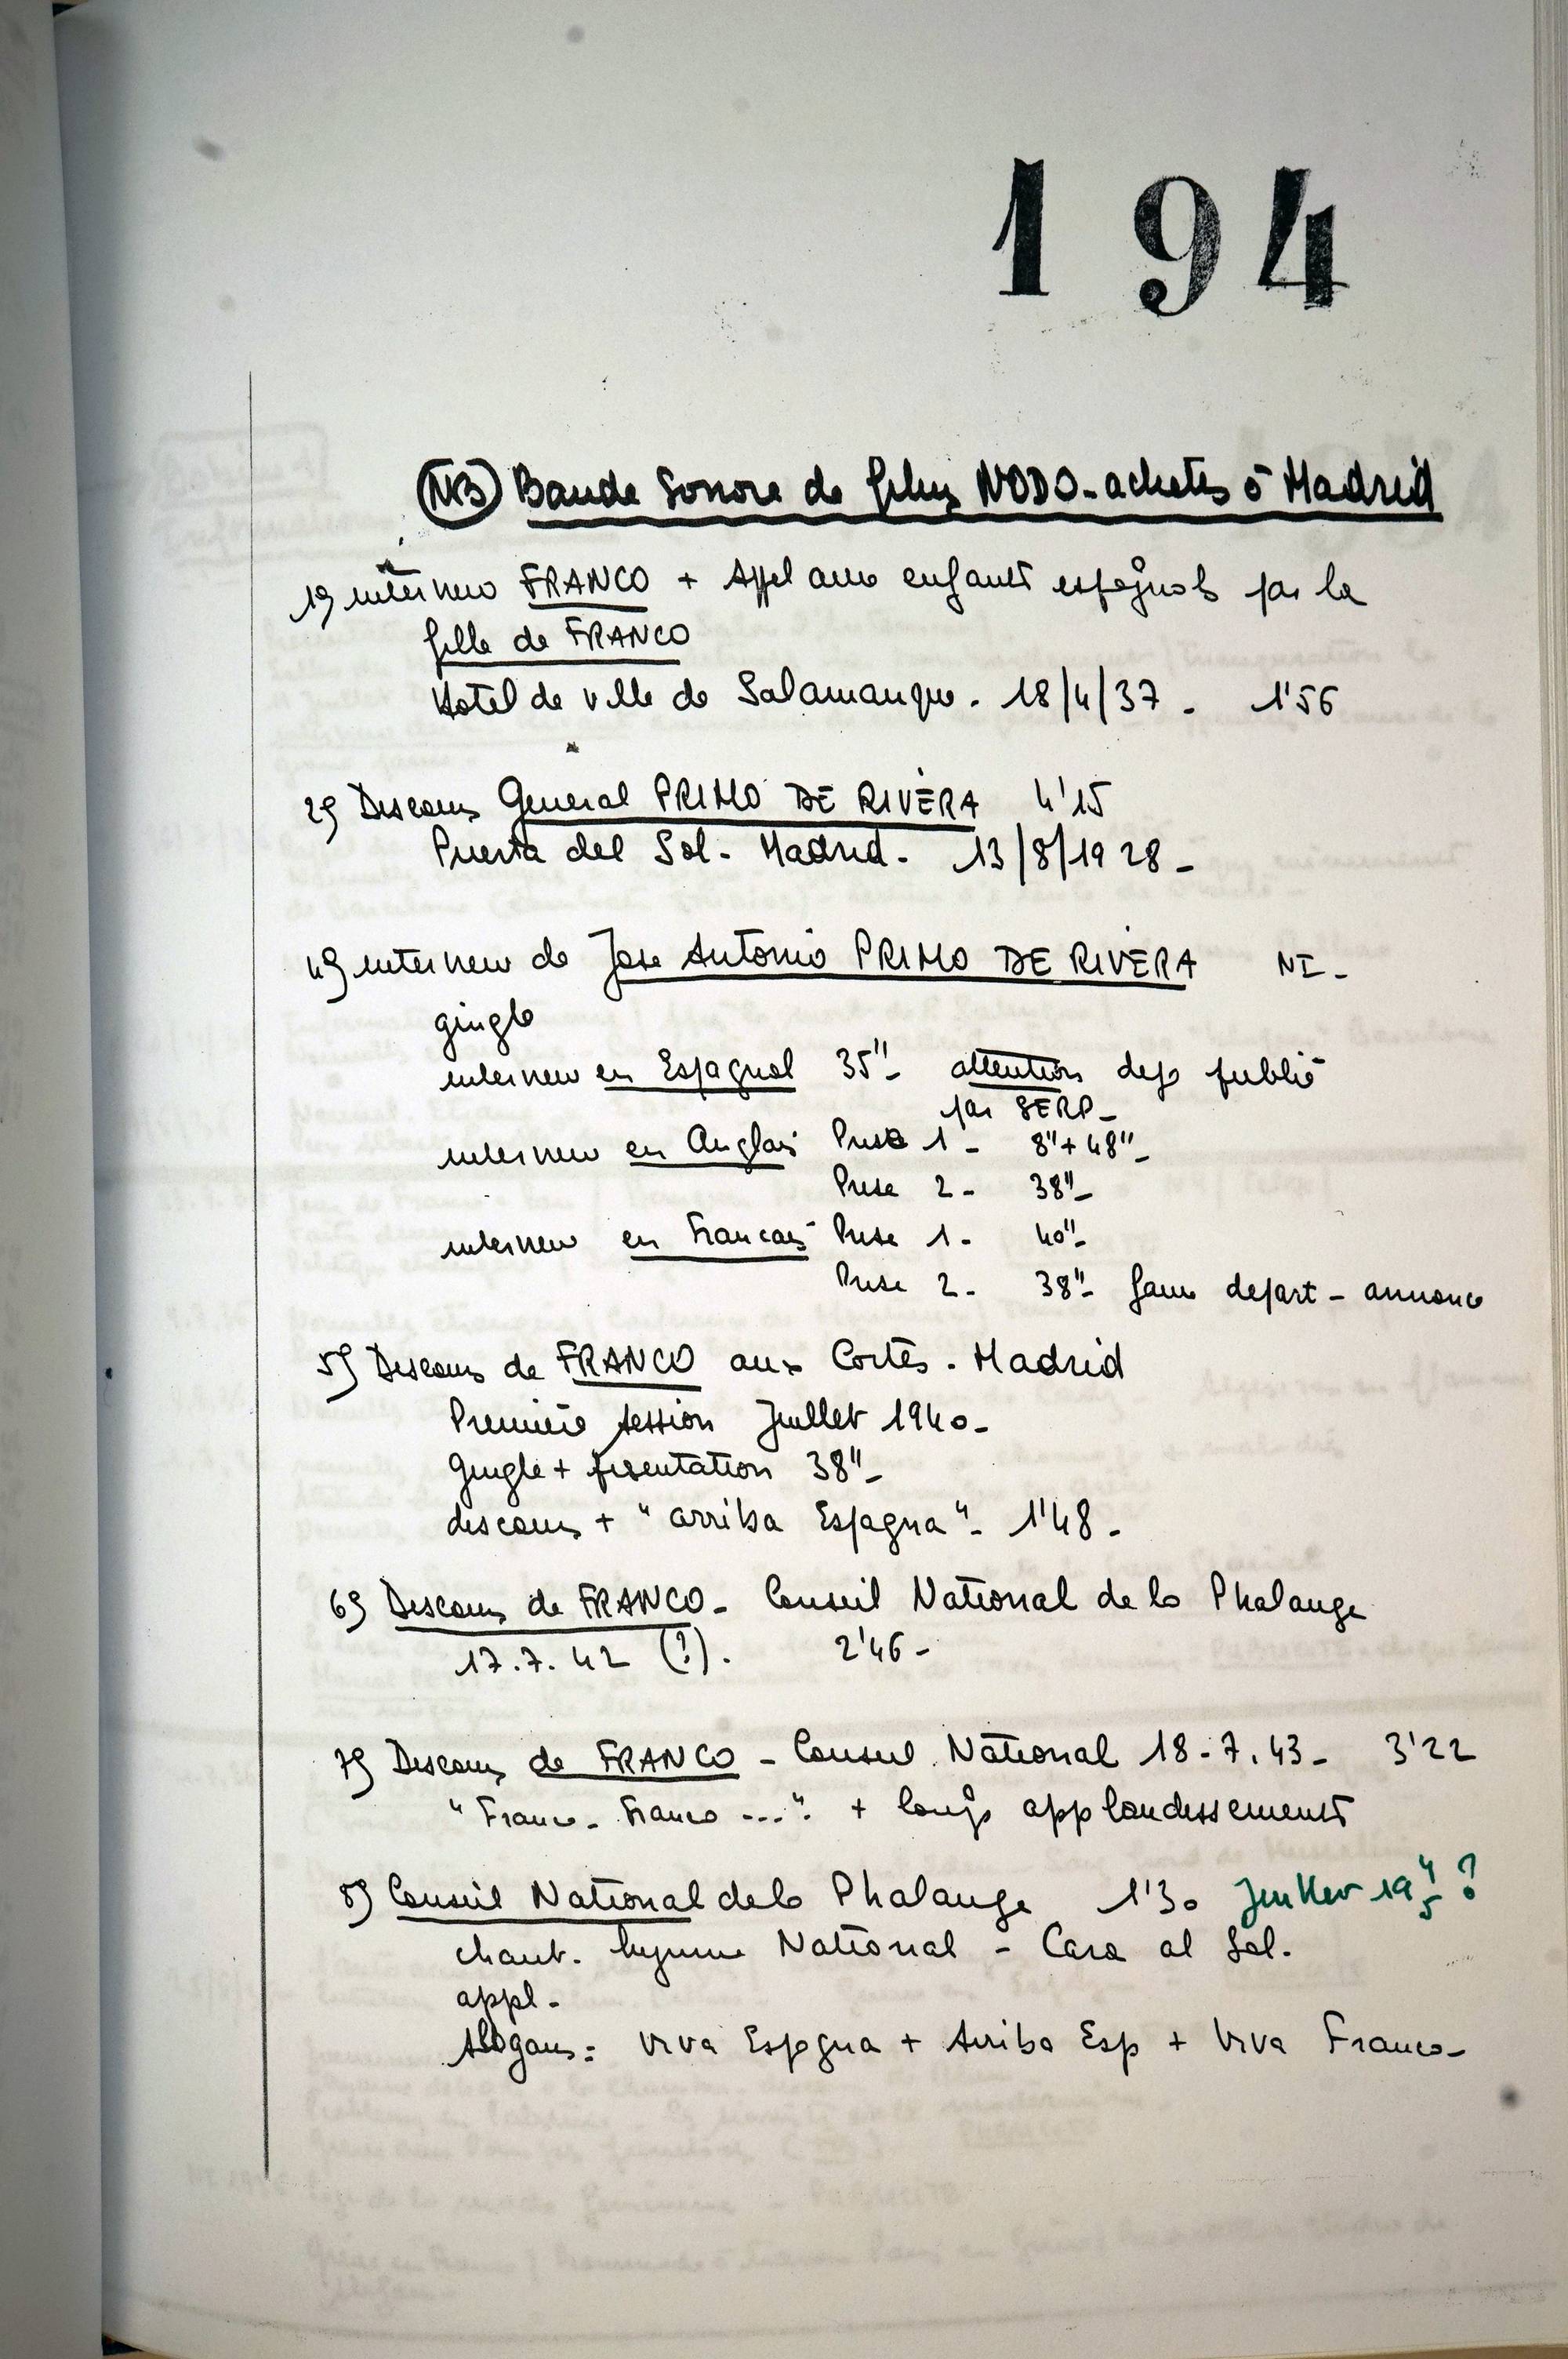 194
NB Bande Sonore de films NODO - achetés à Madrid
1°) interview FRANCO + Appel aux enfants espagnols par la
fille de FRANCO
Hotel de ville de Salamanque. 18/4/37 - 1'56
2°) Discours General PRIMO DE RIVERA 4'15
Puerta del Sol - Madrid - 13/8/1928 -
4°) interview de Jose Antonio PRIMO DE RIVERA NI -
gingle
interview en Espagnol 35" - attention deja publié
par SERP -
interview en Anglais Prise 1 - 8" + 48" -
Prise 2 - 38" -
interview en Francais - Prise 1 - 40" -
Prise 2 - 38" - faux depart - annonce
5°) Discours de FRANCO aux Cortès - Madrid
Première session Juillet 1940 -
Gingle + presentation 38" -
discours + "arriba Espagna" - 1'48 -
6°) Discours de FRANCO - Conseil National de la Phalange
17.7.42 (?). 2'46 -
7°) Discours de FRANCO - Conseil National 18-7.43 - 3'22
"Franco - Franco ..." + longs applaudissements
8°) Conseil National de la Phalange 1'30 Juillet 19 4 5 ?
chant. hymne National - Cara al Sol.
appl -
slogans : Viva Espagna + Arriba Esp + Viva Franco -